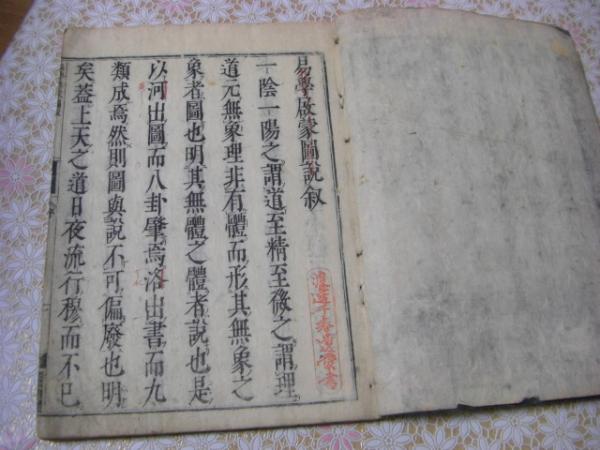 易學啟蒙圖說叙
一陰一陽之謂道至精至微之謂理
道元無象理非有體而形其無象之
象者圖也明其無體之體者說也是
以河出圖而八卦肇焉洛出書而九
類成焉然則圖與說不可偏廢也明
矣蓋上天之道日夜流行穆而不已